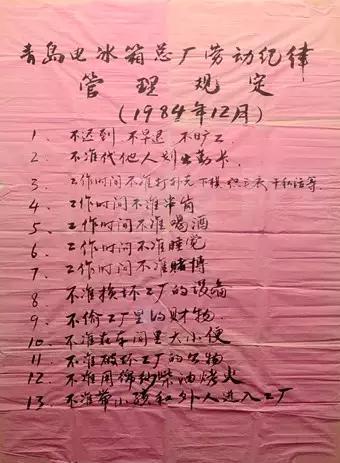 青岛电冰箱总厂劳动纪律
管理规定
(1984年12月)
1. 不迟到 不早退 不旷工
2. 不准代他人划出勤卡.
3. 工作时间不准打扑克 下棋 织毛衣 干私活等.
4. 工作时间不准串岗
5. 工作时间不准喝酒
6. 工作时间不准睡觉
7. 工作时间不准赌博
8 不准损坏工厂的设备
9. 不偷工厂里的财物
10. 不准在车间里大小便
11. 不准破坏工厂的公物
12. 不准用棉纱柴油烤火
13. 不准带小孩和外人进入工厂